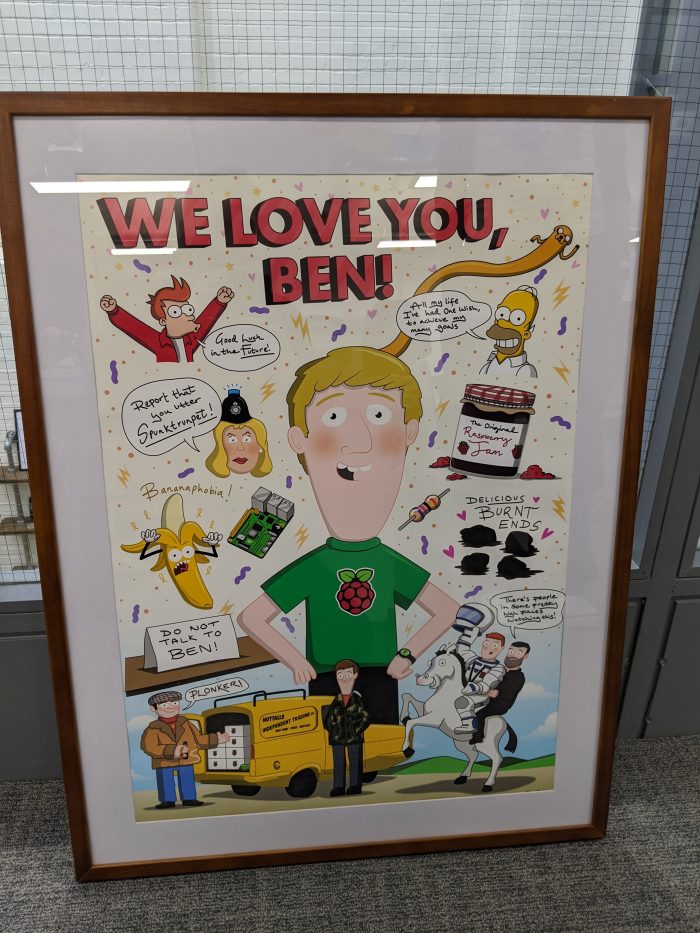 WE LOVE YOU,
BEN!
Good Luck
in the Future!
All my life
I've had One Wish,
to achieve my
many goals
Report that
you utter
Spunktrumpet!
The Original
Raspberry
Jam
Bananaphobia!
DELICIOUS
BURNT
ENDS
DO NOT
TALK TO
BEN!
There's people
in some pretty
high places
watching this!
PLONKER!
NUTTALLS
INDEPENDENT TRADING CO